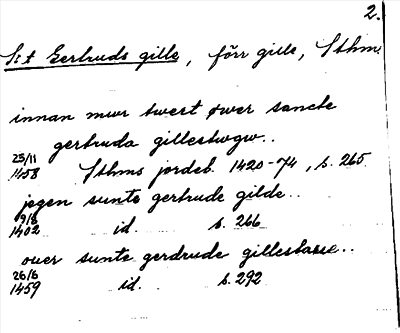 2.
S:t Gertruds gille, förr gille, Sthm
innan mwr twert øwer sancte
gertruda gillestwgw..
25/11 1458 Sthms jordeb. 1420-74, s. 265
jegen sunte gertrude gilde..
9/8 1402 id. s. 266
ouer sunte gerdrude gillestaue..
26/6 1459 id. s. 292